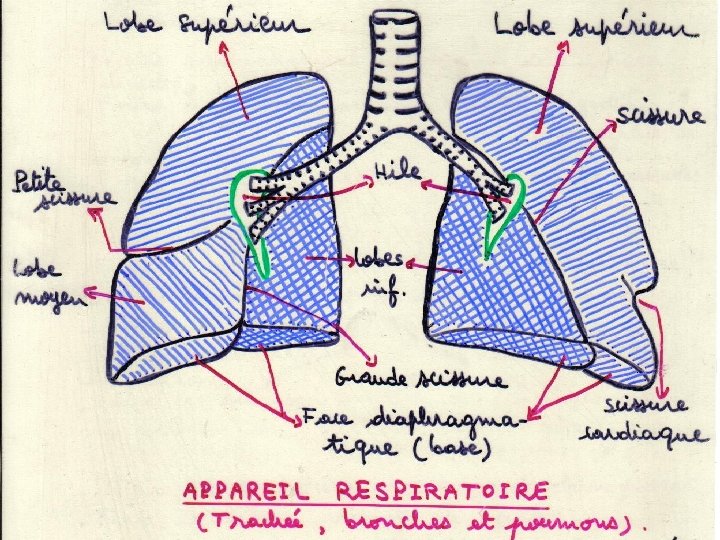 Lobe Supérieur
Lobe supérieur
scissure
Petite
scissure
Hile
Lobe
moyen
lobes
inf.
Grande scissure
Face diaphragma-
tique (base)
scissure
cardiaque
APPAREIL RESPIRATOIRE
(Trachée, bronches et poumons).